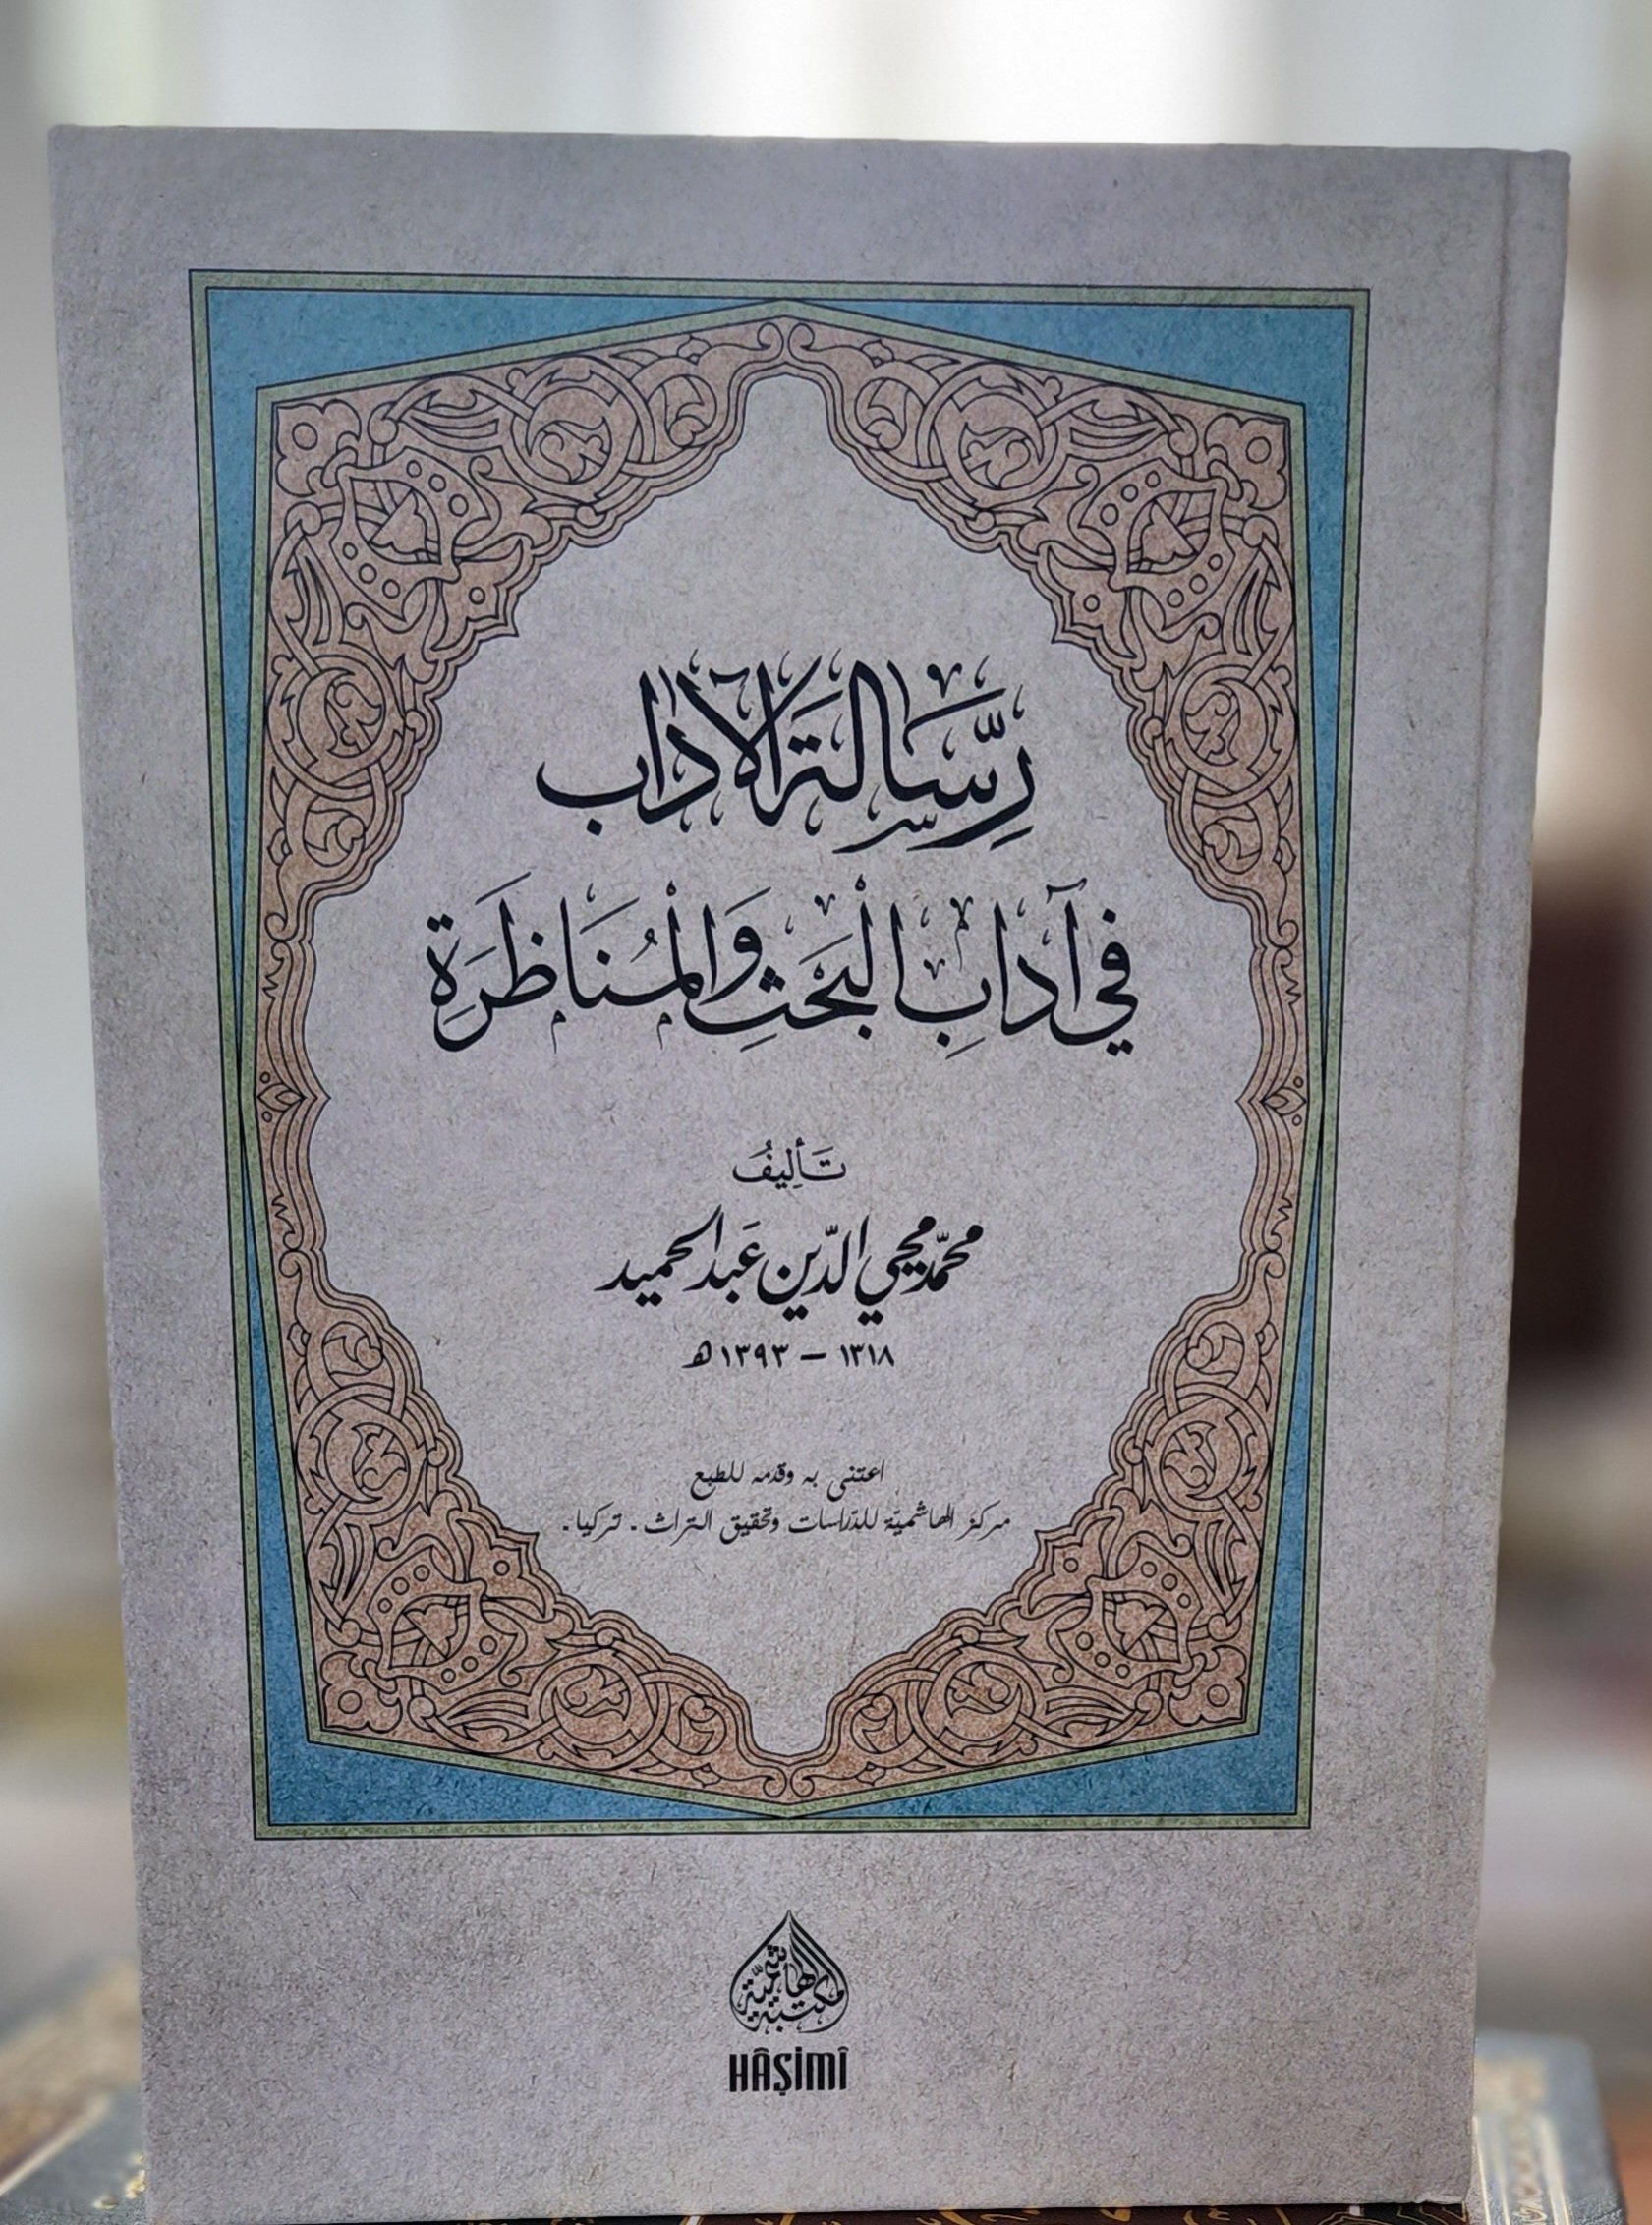 رِسَالَةُ الآدَابِ
فِي آدَابِ الْبَحْثِ وَالْمُنَاظَرَةِ
تَأْلِيفُ
محمّد محيي الدّين عَبد الحميد
١٣١٨ – ١٣٩٣ هـ
اعتنى به وقدمه للطبع
مركز الهاشميّة للدّراسات وتحقيق التراث - تركيا -
مكتبة الهاشميّة
HÂŞİMÎ